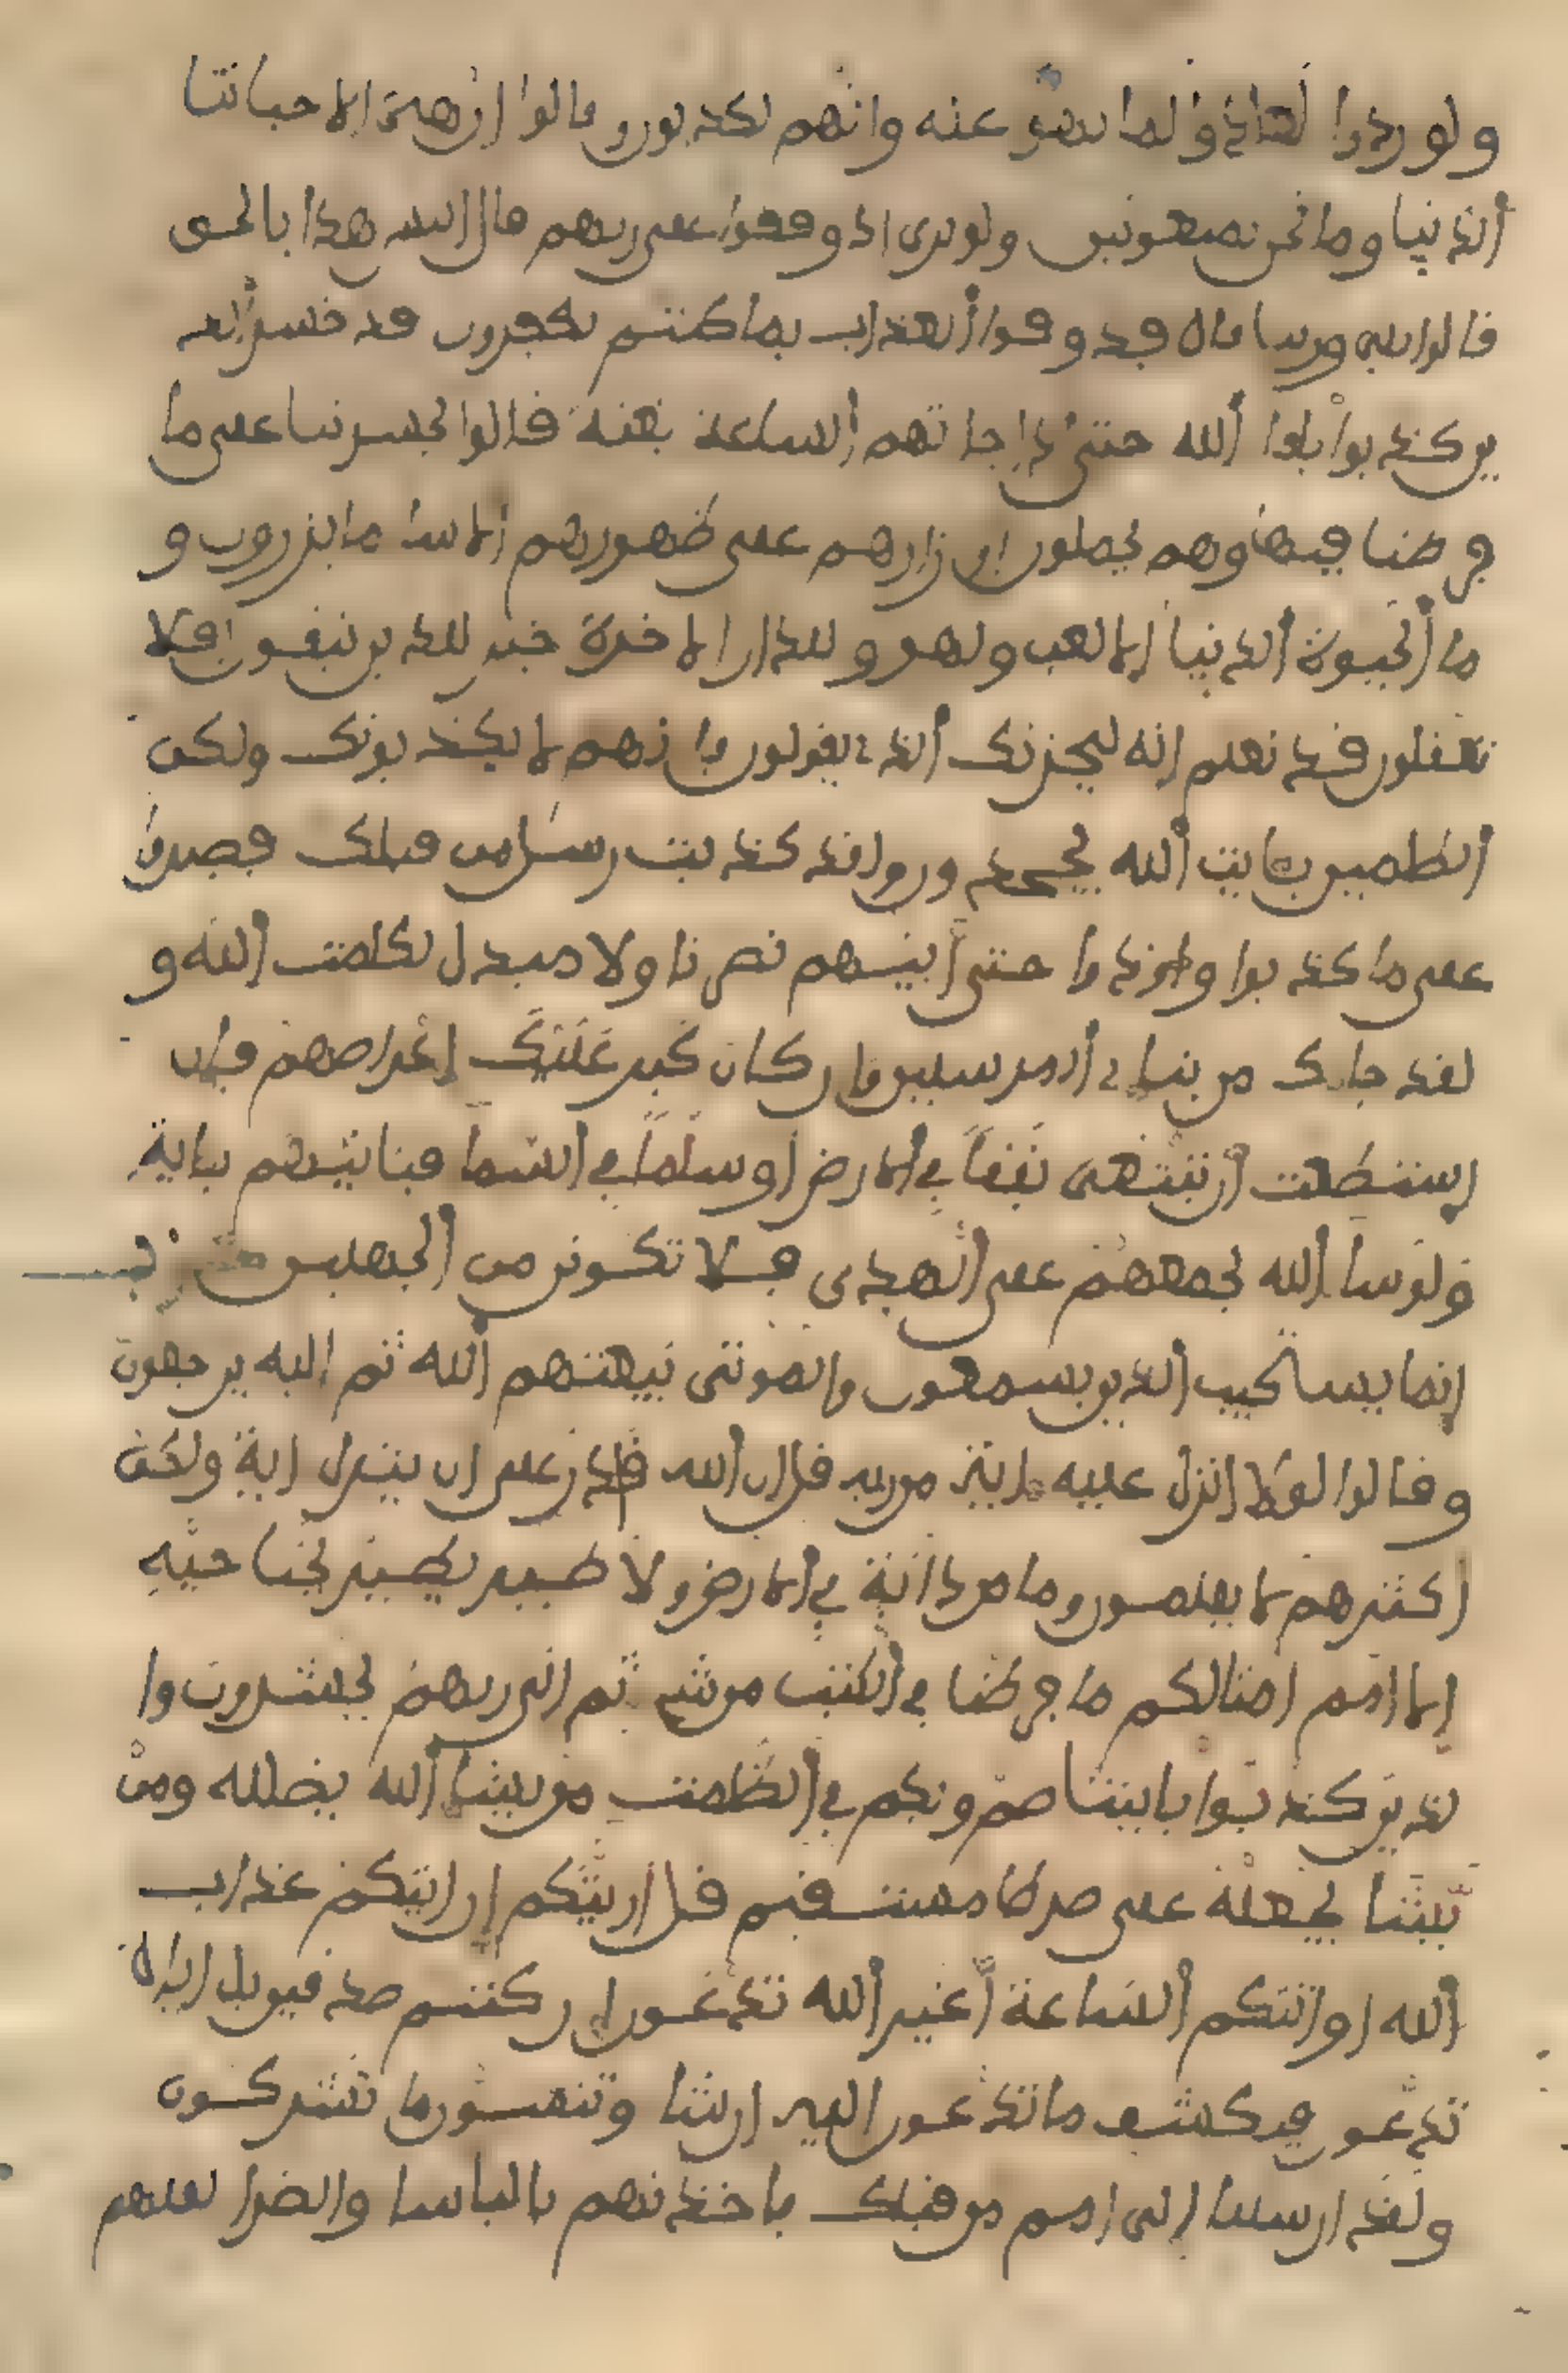 ولو ردوا لعادوا لما نهوا عنه وانهم لكذبون وقالوا ان هي الا حياتنا
ألدنيا وما نحن بمبعوثين ولو ترى اذ وقفوا على ربهم قال اليس هذا بالحق
قالوا بلى وربنا قال فذوقوا ألعذاب بما كنتم تكفرون قد خسر ألذ
ين كذبوا بلقا ألله حتى إذا جاتهم ألساعة بغتة قالوا يحسرتنا على ما
فرطنا فيها وهم يحملون اوزارهم على ظهورهم الا سا ما يزرون و
ما ألحيوة ألدنيا إلا لعب ولهو وللدار الاخرة خير للذين يتقون افلا
تعقلون قد نعلم إنه ليحزنك ألذي يقولون فإنهم لا يكذبونك ولكن
ألظلمين بايت ألله يجحدون ولقد كذبت رسل من قبلك فصبروا
على ما كذبوا وأوذوا حتى أتيهم نصرنا ولا مبدل لكلمت ألله و
لقد جاك من نباي ألمرسلين وإن كان كبر عليك إعراضهم فإن
إستطعت أن تبتغى نفقا في ألارض أو سلما في ألسما فتاتيهم باية
ولو شا ألله لجمعهم على ألهدى فلا تكونن من ألجهلين
إنما يستجيب ألذين يسمعون والموتى يبعثهم ألله ثم إليه يرجعون
وقالوا لولا انزل عليه اية من ربه قل ان ألله قادر على ان ينزل اية ولكن
أكثرهم لا يعلمون وما من دابة في ألارض ولا طيير يطير بجناحيه
إلا امم امثالكم ما فرطنا في ألكتب من شي ثم الى ربهم يحشرون وا
لذين كذبوا بايتنا صم وبكم في ألظلمت من يشا ألله يضلله ومن
يشا يجعله على صرط مستقيم قل ارايتكم إن اتيكم عذاب
ألله او اتتكم ألساعة أغير ألله تدعون إن كنتم صدقين بل إياه
تدعون فيكشف ما تدعون اليه ان شا وتنسون ما تشركون
ولقد ارسلنا إلى امم من قبلك فاخذنهم بالباسا والضرا لعلهم